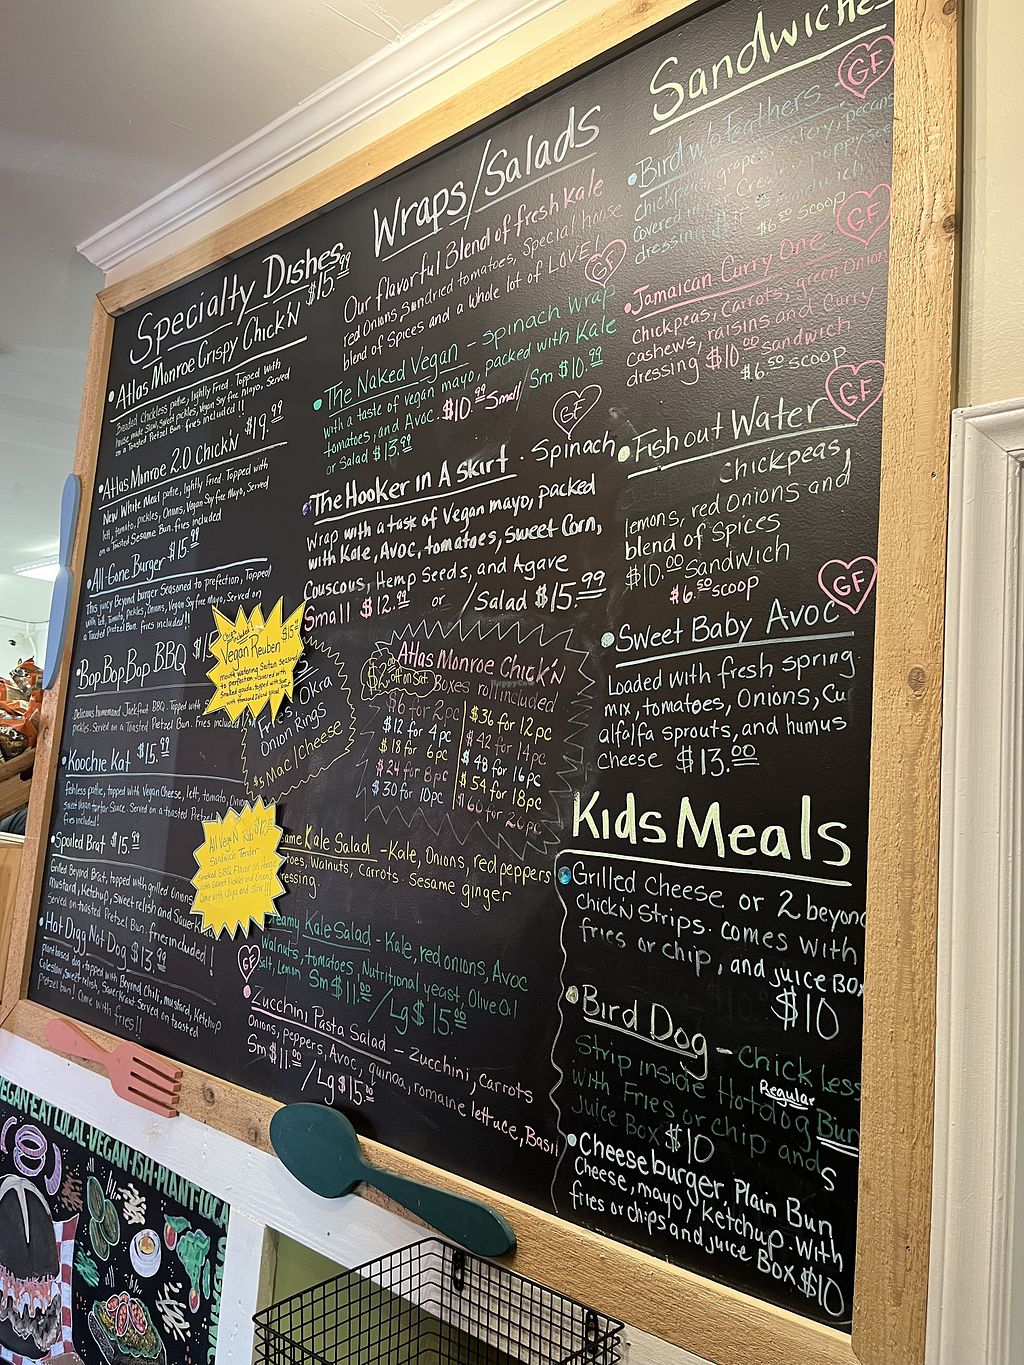 Specialty Dishes
• Atlas Monroe Crispy Chick'N $15.99
Breaded Chickless patie, lightly Fried. Topped with
house made Slaw, Sweet pickles, Vegan Soy free Mayo, Served
on a Toasted Pretzel Bun. fries included!!
• Atlas Monroe 2.0 Chick'n $19.99
New White Meat patie, lightly Fried. Topped with
lett, tomato, pickles, Onions, Vegan Soy free Mayo, Served
on a Toasted Sesame Bun. fries included
• All-Gone Burger $15.99
This juicy Beyond burger Seasoned to prefection, Topped
with Lett, Tomato, pickles, Onions, Vegan Soy free Mayo, Served on
a Toasted Pretzel Bun. fries included!!
• Bop Bop Bop BBQ $15
Delicious homemand Jackfruit BBQ. Topped with
pickles. Served on a Toasted Pretzel Bun. Fries included
• Koochie Kat $15.99
fishless patie, topped with Vegan Cheese, lett, tomato, Onion
Sweet Vegan tartar Sauce. Served on a toasted Pretzel
fries included!
• Spoiled Brat $15.99
Grilled Beyond Brat, topped with grilled Onions
Mustard, Ketchup, Sweet relish and Sauerkraut
Served on toasted Pretzel Bun. fries included!
• Hot Digg Not Dog $13.99
plant based dog, topped with Beyond Chili, mustard, Ketchup
Coleslaw, Sweet relish, Sauerkraut. Served on toasted
pretzel bun! Come with fries!!
Vegan Reuben $15
Mouth Watering Seitan Seasoned
to perfection, covered with
All Vegan Rib
Sandwich Tender
Smoked BBQ Flavor on Hoagie
with Sweet Pickles and Onions
Come with Chips and Slaw!!!
Wraps/Salads
Our flavorful Blend of fresh Kale
red Onions, Sundried tomatoes, Special house
blend of Spices and a Whole lot of LOVE!
GF
• The Naked Vegan - Spinach Wrap
with a taste of vegan mayo, packed with Kale
tomatoes, and Avoc. $10.99 Small / Sm $10.99
or Salad $13.99
GF
• The Hooker in A Skirt - Spinach
Wrap with a task of Vegan mayo, packed
with Kale, Avoc, tomatoes, Sweet Corn,
Couscous, Hemp Seeds, and Agave
Small $12.99 or / Salad $15.99
Fries, Okra
Onion Rings
$5 Mac | Cheese
Atlas Monroe Chick'n
$2 off on Sat Boxes roll included
$6 for 2pc
$12 for 4pc
$18 for 6pc
$24 for 8pc
$30 for 10pc
$36 for 12pc
$42 for 14pc
$48 for 16pc
$54 for 18pc
$60 for 20pc
same Kale Salad - Kale, Onions, red peppers
toes, Walnuts, Carrots. Sesame ginger
ressing.
reamy Kale Salad - Kale, red onions, Avoc
Walnuts, tomatoes, Nutritional yeast, Olive Oil
Salt, Lemon Sm $11.00 / Lg $15.00
GF
• Zucchini Pasta Salad - Zucchini, Carrots
Onions, peppers, Avoc, quinoa, romaine lettuce, Basil
Sm $11.00 / Lg $15.00
Sandwiches
GF
• Bird w/o Feathers -
chickpeas, grapes, Celery, pecans
Covered in our Creamy Poppyseed
dressing Sandwich
$6.50 SCOOP
GF
• Jamaican Curry One
chickpeas, Carrots, green Onion
cashews, raisins and Curry
dressing $10.00 Sandwich
$6.50 SCOOP
GF
• Fish out Water
Chickpeas,
lemons, red Onions and
blend of Spices
$10.00 Sandwich
$6.50 SCOOP
GF
• Sweet Baby Avoc
Loaded with fresh spring
mix, tomatoes, Onions, Cu
alfalfa sprouts, and humus
Cheese $13.00
Kids Meals
• Grilled Cheese or 2 beyond
chick'n strips. comes with
fries or chip, and juice Box
$10
• Bird Dog - Chickless
Strip inside Hotdog Regular Bun
With Fries or chip and
Juice Box $10
• Cheeseburger, Plain Bun
Cheese, mayo, Ketchup. With
fries or chips and juice Box $10
VEGAN·EAT LOCAL·VEGAN·ISH·PLANT